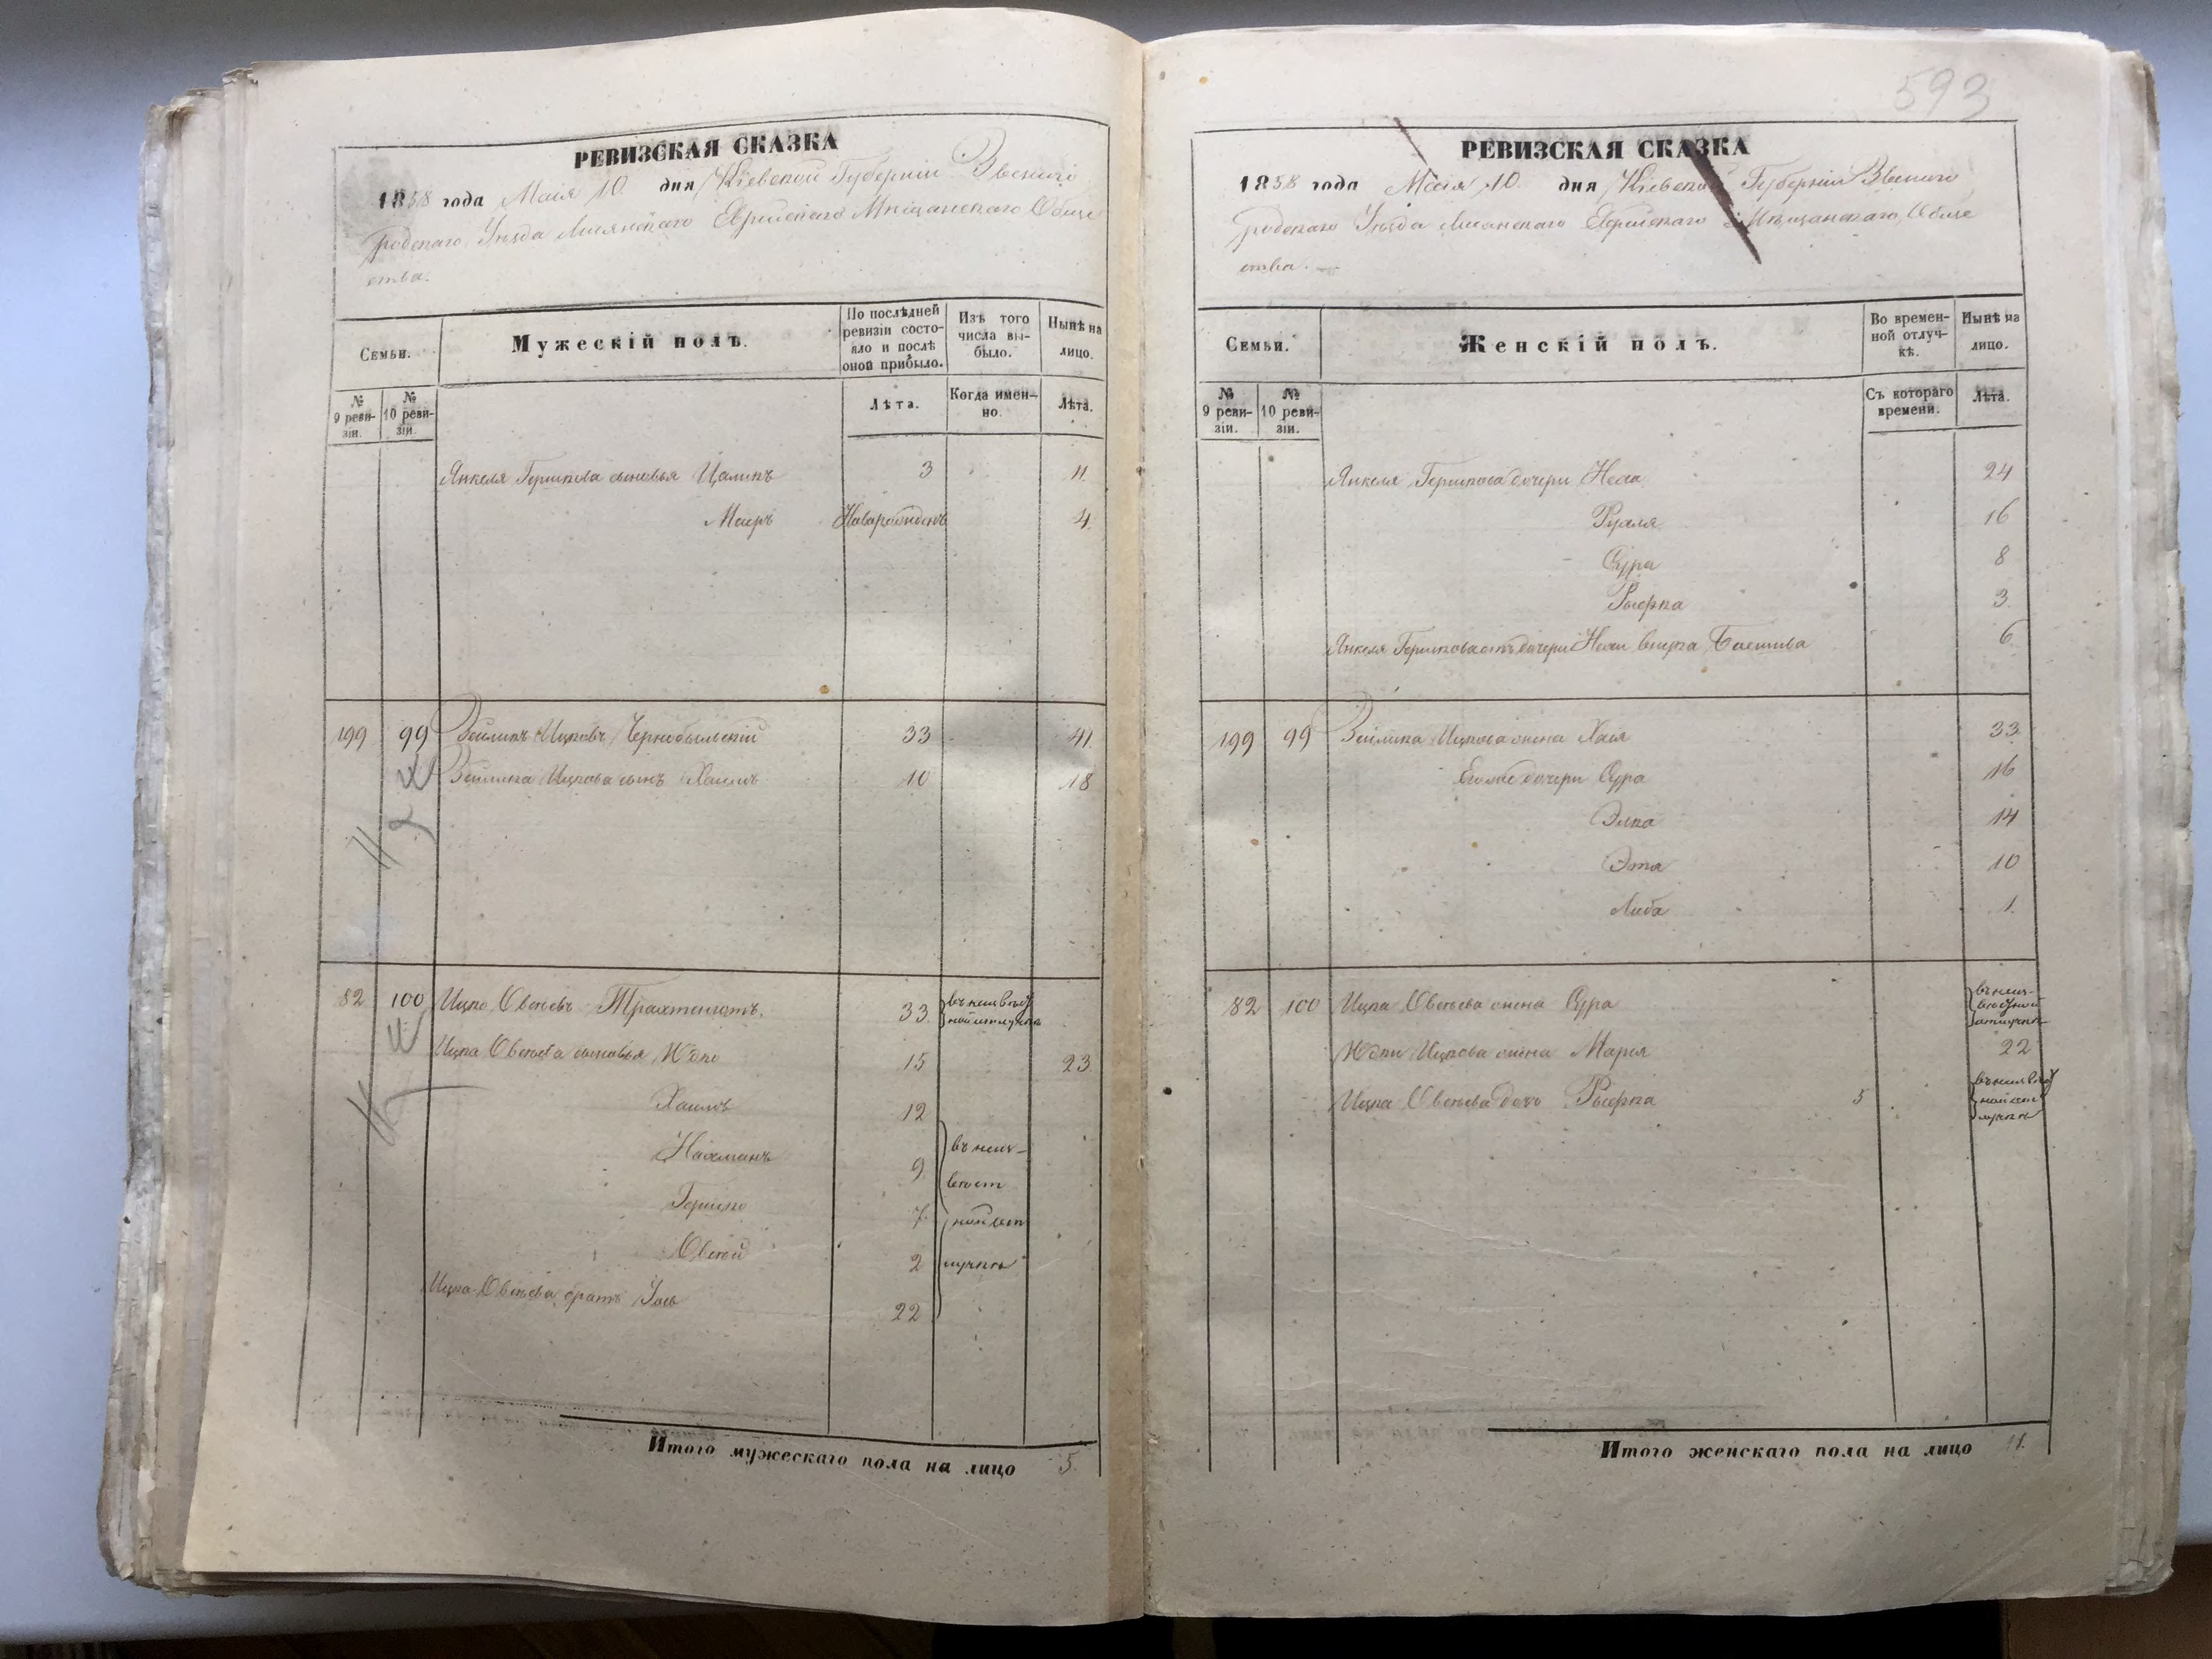 РЕВИЗСКАЯ СКАЗКА
1858 года Маія 10. дня Кіевской Губерніи Звениго
родскаго Уѣзда Лисянскаго Еврейскаго Мѣщанскаго Обще
ства.
Семьи.
Мужескій полъ.
По послѣдней ревизіи состо-
яло и послѣ
оной прибыло.
Изъ того
числа вы-
было.
Нынѣ на
лицо.
№
9 реви-
зіи.
№
10 реви-
зіи.
Лѣта.
Когда имен-
но.
Лѣта.
Янкеля Гершкова сыновья Цаликъ 3 11.
Маеръ Новорожденъ 4.
199 99 Зейликъ Ицковъ Чернобыльскій 33 41.
Зейлика Ицкова сынъ Хаимъ 10 18
82 100 Ицко Овсѣевъ Трахтенготъ. 33. въ неизвѣст
ной отлучкѣ
Ицка Овсѣева сыновья Юдко 15 23.
Хаимъ 12
Нахманъ 9 въ неиз-
вѣст
Гершко 7 ной от
Овсѣй 2 лучкѣ
Ицка Овсѣева братъ 22
Итого мужескаго пола на лицо 5.
593
РЕВИЗСКАЯ СКАЗКА
1858 года Маія 10. дня Кіевской Губерніи Звениго
родскаго Уѣзда Лисянскаго Еврейскаго Мѣщанскаго Обще
ства.
Семьи.
Женскій полъ.
Во времен-
ной отлуч-
кѣ.
Нынѣ на
лицо.
№
9 реви-
зіи.
№
10 реви-
зіи.
Съ котораго
времени.
Лѣта.
Янкеля Гершкова дочери Неса 24
Рухля 16
Сура 8
Рысрка 3.
Янкеля Гершкова отъ дочери внучка Басшива 6
199 99 Зейлика Ицкова жена Хая 33.
Его же дочери Сура 16
Элка 14
Эта 10
Либа 1.
82 100 Ицка Овсѣева жена Сура въ неиз-
вѣстной
отлучкѣ
Юдки Ицкова жена Марья 22
Ицка Овсѣева дочь Рысрка 5 въ неизвѣст
ной от
лучкѣ
Итого женскаго пола на лицо 11.